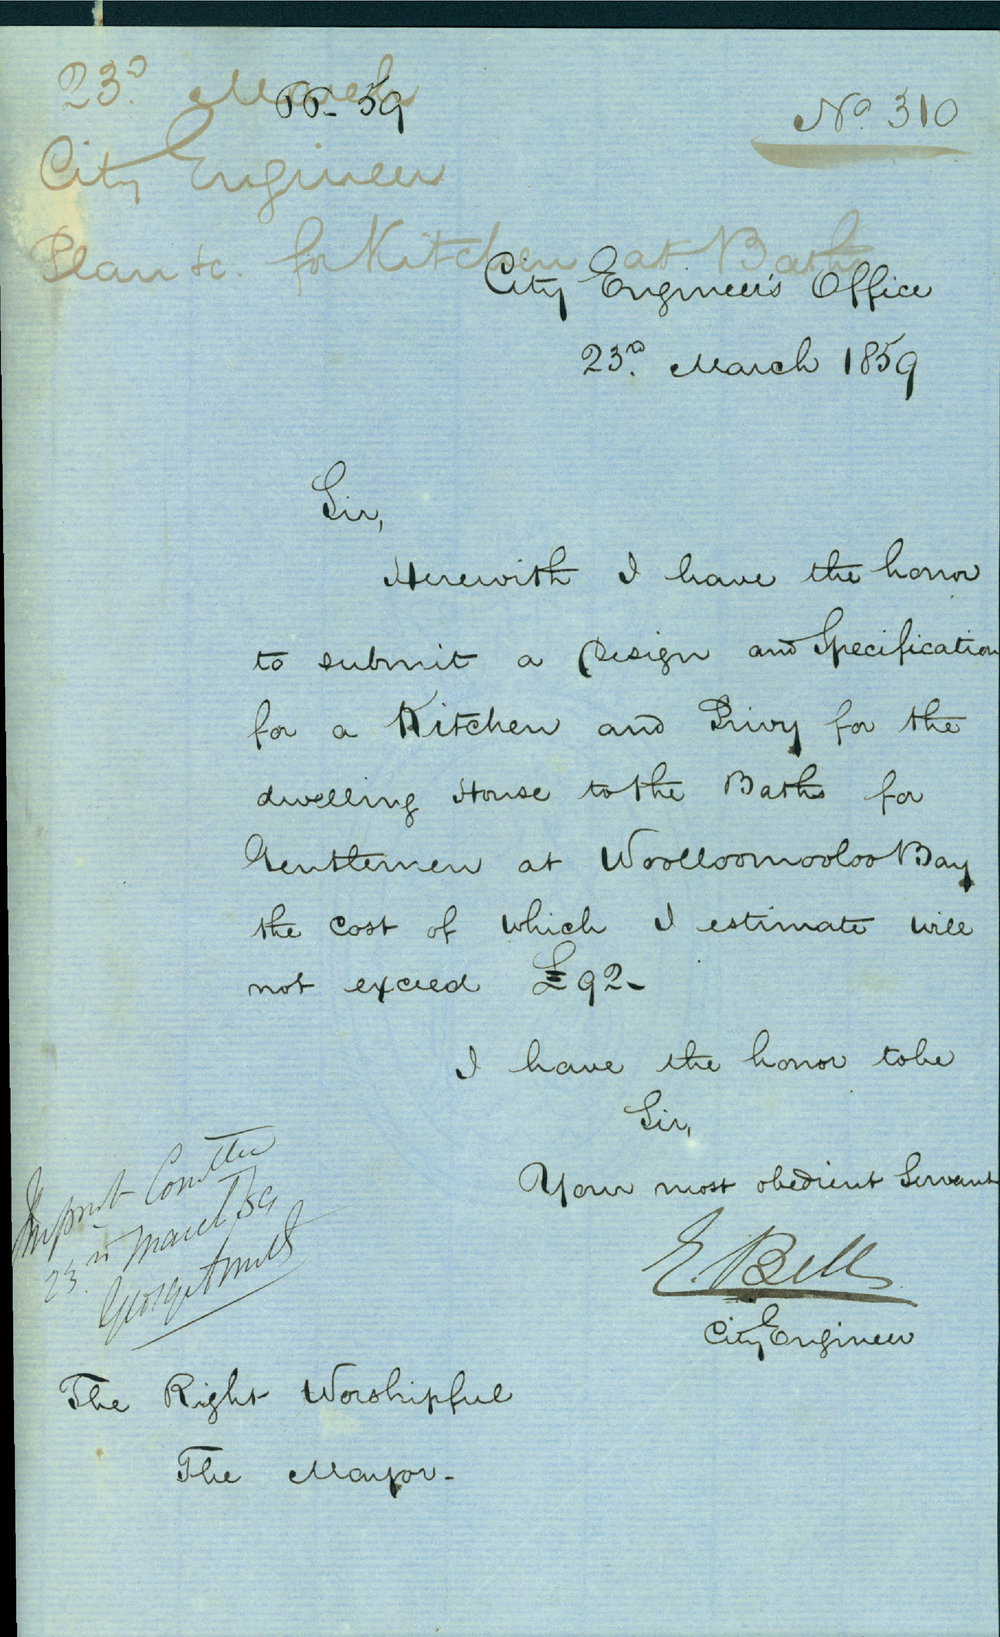 23.d March
PP- 59
No. 310
City Engineer
Plan &c. for Kitchen at Baths
City Engineer's Office
23.rd March 1859
Sir,
Herewith I have the honor
to submit a Design and Specification
for a Kitchen and Privy for the
dwelling House to the Baths for
Gentlemen at Woolloomooloo Bay
the cost of which I estimate will
not exceed £92-
I have the honor to be
Sir,
Your most obedient Servant
E. Bell
City Engineer
23.rd March /59
George Smith
The Right Worshipful
The Mayor-